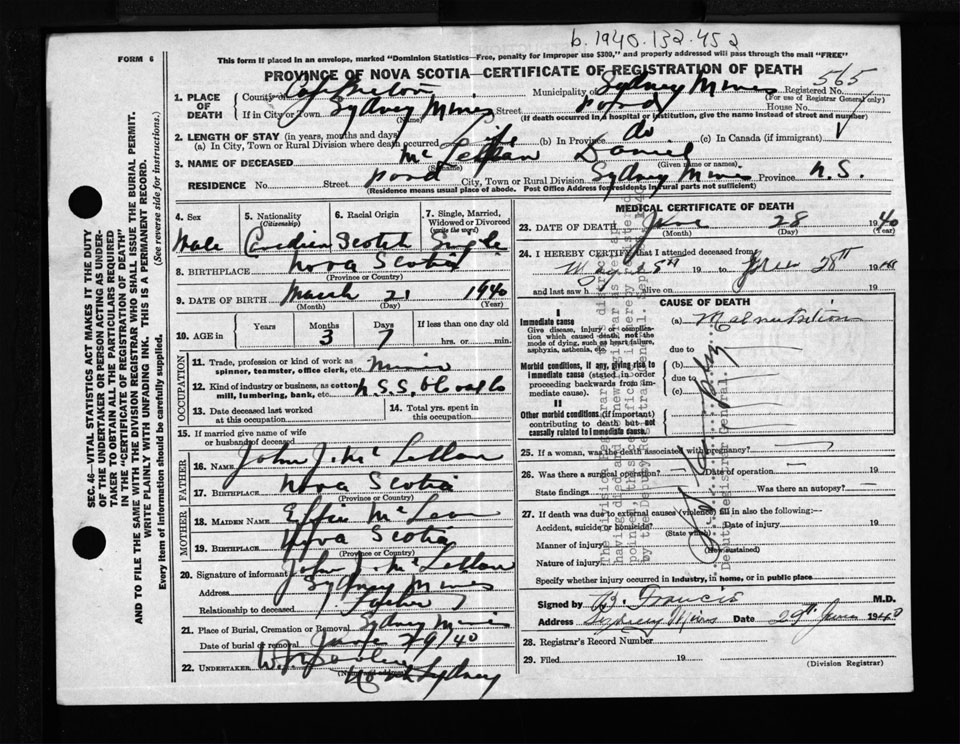 b. 1940. 132. 452
FORM 6
This form if placed in an envelope, marked "Dominion Statistics—Free, penalty for improper use $300," and properly addressed will pass through the mail "FREE"
PROVINCE OF NOVA SCOTIA—CERTIFICATE OF REGISTRATION OF DEATH
SEC. 46—VITAL STATISTICS ACT MAKES IT THE DUTY
OF THE UNDERTAKER OR PERSON ACTING AS UNDER-
TAKER TO OBTAIN ALL THE PARTICULARS REQUIRED
IN THE "CERTIFICATE OF REGISTRATION OF DEATH"
AND TO FILE THE SAME WITH THE DIVISION REGISTRAR WHO SHALL ISSUE THE BURIAL PERMIT.
WRITE PLAINLY WITH UNFADING INK. THIS IS A PERMANENT RECORD.
Every item of information should be carefully supplied. (See reverse side for instructions.)
1. PLACE OF DEATH County of Cape Breton Municipality of Sydney Mines Registered No. 565
(For use of Registrar General only)
If in City or Town Sydney Mines Street Pond House No.
(Name) (If death occurred in a hospital or institution, give the name instead of street and number)
2. LENGTH OF STAY (in years, months and days)
(a) In City, Town or Rural Division where death occurred life (b) In Province do (c) In Canada (if immigrant)
3. NAME OF DECEASED McLellan Daniel
(Given name or names)
RESIDENCE No. Street Pond City, Town or Rural Division Sydney Mines Province N.S.
(Residence means usual place of abode. Post Office Address for residents in rural parts not sufficient)
4. Sex Male
5. Nationality (Citizenship) Canadian
6. Racial Origin Scotch
7. Single, Married, Widowed or Divorced (write the word) Single
8. BIRTHPLACE Nova Scotia
(Province or Country)
9. DATE OF BIRTH March 21 1940
(Month) (Day) (Year)
10. AGE in Years Months 3 Days 7 If less than one day old hrs. or min.
OCCUPATION
11. Trade, profession or kind of work as spinner, teamster, office clerk, etc.
12. Kind of industry or business, as cotton mill, lumbering, bank, etc.
13. Date deceased last worked at this occupation
14. Total yrs. spent in this occupation
15. If married give name of wife or husband of deceased
FATHER
16. NAME John J. McLellan
17. BIRTHPLACE Nova Scotia
(Province or Country)
MOTHER
18. MAIDEN NAME Effie McLean
19. BIRTHPLACE Nova Scotia
(Province or Country)
20. Signature of informant John J. McLellan
Address Sydney Mines
Relationship to deceased Father
21. Place of Burial, Cremation or Removal Sydney Mines
Date of burial or removal June 29/40
22. UNDERTAKER
(Name and address)
North Sydney
MEDICAL CERTIFICATE OF DEATH
23. DATE OF DEATH June 28 1940
(Month) (Day) (Year)
24. I HEREBY CERTIFY that I attended deceased from
19 to June 28th 19
and last saw h alive on 19
CAUSE OF DEATH
I
Immediate cause
Give disease, injury or complication which caused death, not the mode of dying, such as heart failure, asphyxia, asthenia, etc.
(a) Malnutrition
due to
Morbid conditions, if any, giving rise to immediate cause (stated in order proceeding backwards from immediate cause).
(b)
due to
(c)
II
Other morbid conditions (if important) contributing to death but not causally related to immediate cause.
25. If a woman, was the death associated with pregnancy?
26. Was there a surgical operation? Date of operation 19
State findings Was there an autopsy?
27. If death was due to external causes (violence) fill in also the following:—
Accident, suicide or homicide? Date of injury 19
(State which)
Manner of injury
(How sustained)
Nature of injury
Specify whether injury occurred in industry, in home, or in public place
Signed by B. Francis M.D.
Address Sydney Mines Date 29th June 1940
28. Registrar's Record Number
29. Filed 19
(Division Registrar)
Deputy Registrar General.